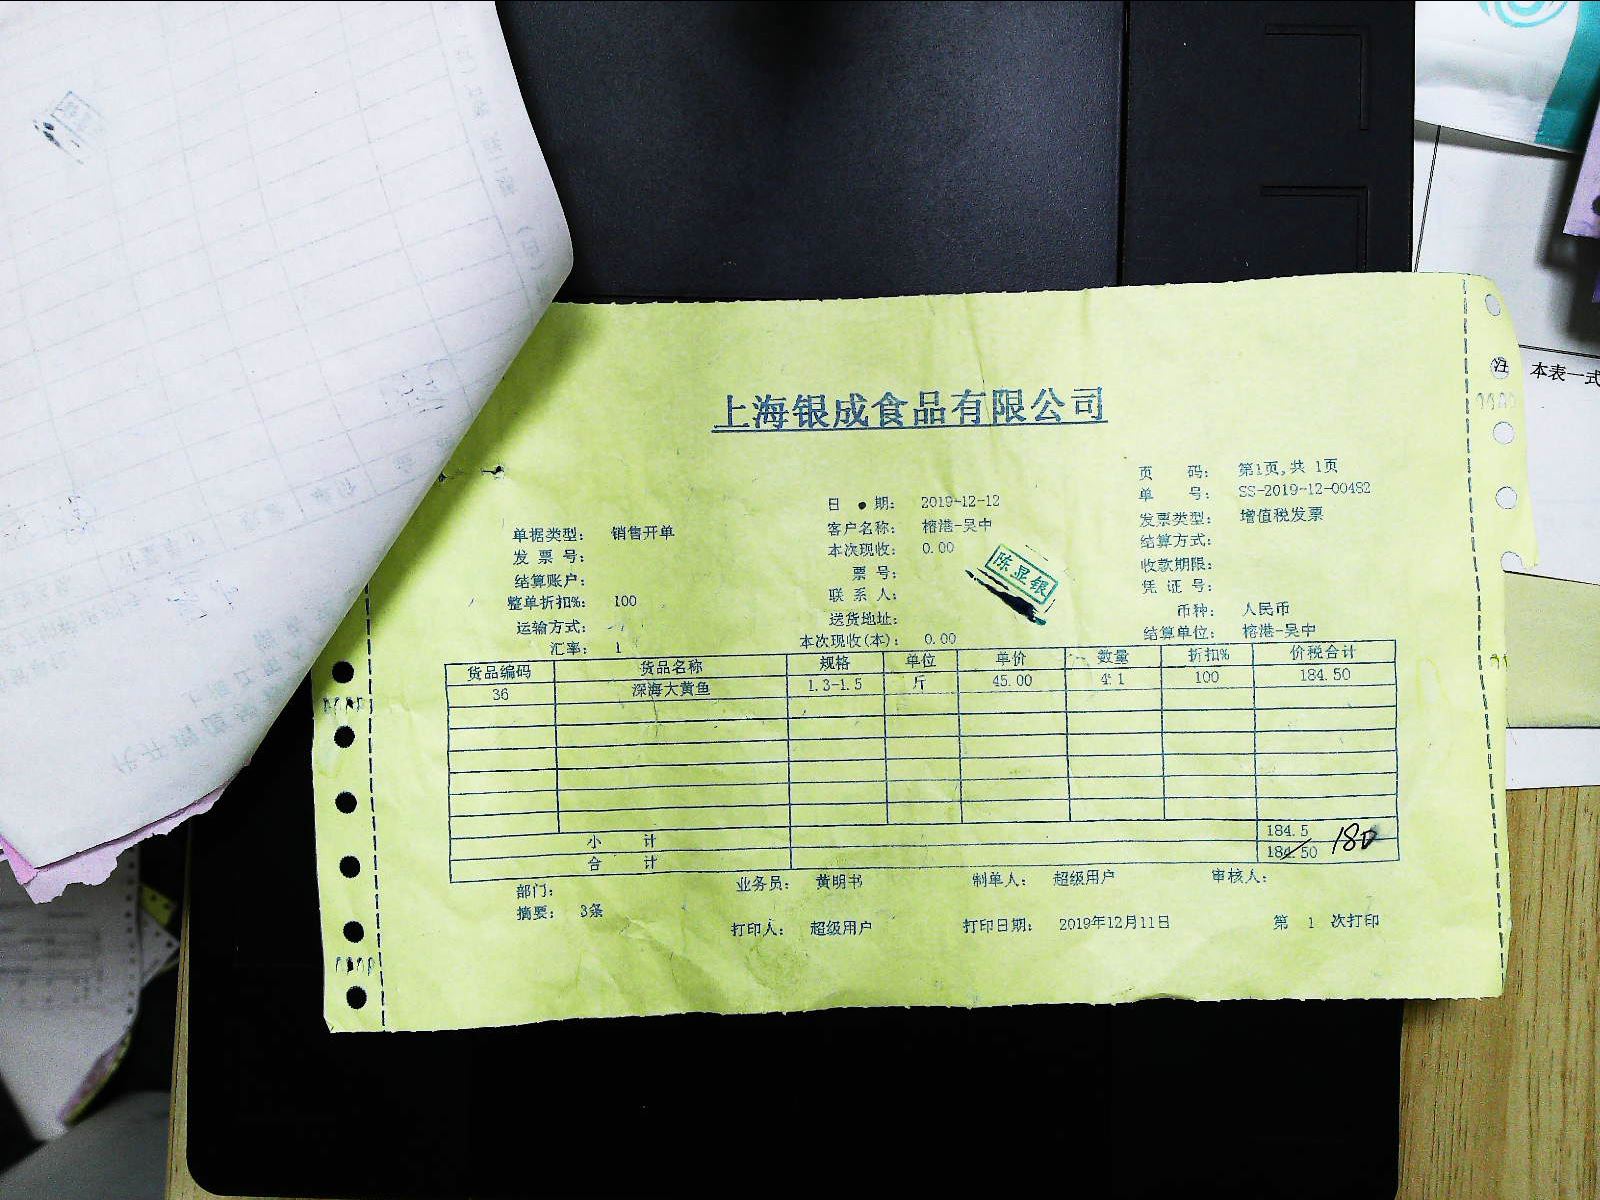 上海银成食品有限公司
页 码： 第1页,共 1页
日 期： 2019-12-12 单 号： SS-2019-12-00482
单据类型： 销售开单 客户名称： 榕港-吴中 发票类型： 增值税发票
发 票 号： 本次现收： 0.00 结算方式：
结算账户： 票 号： 收款期限：
整单折扣%： 100 联 系 人： 凭 证 号：
运输方式： 送货地址： 币种： 人民币
汇率： 1 本次现收(本)： 0.00 结算单位： 榕港-吴中
陈显银
货品编码 货品名称 规格 单位 单价 数量 折扣% 价税合计
36 深海大黄鱼 1.3-1.5 斤 45.00 4.1 100 184.50
小 计 184.5
合 计 184.50 180
部门： 业务员： 黄明书 制单人： 超级用户 审核人：
摘要： 3条
打印人： 超级用户 打印日期： 2019年12月11日 第 1 次打印
注 本表一式